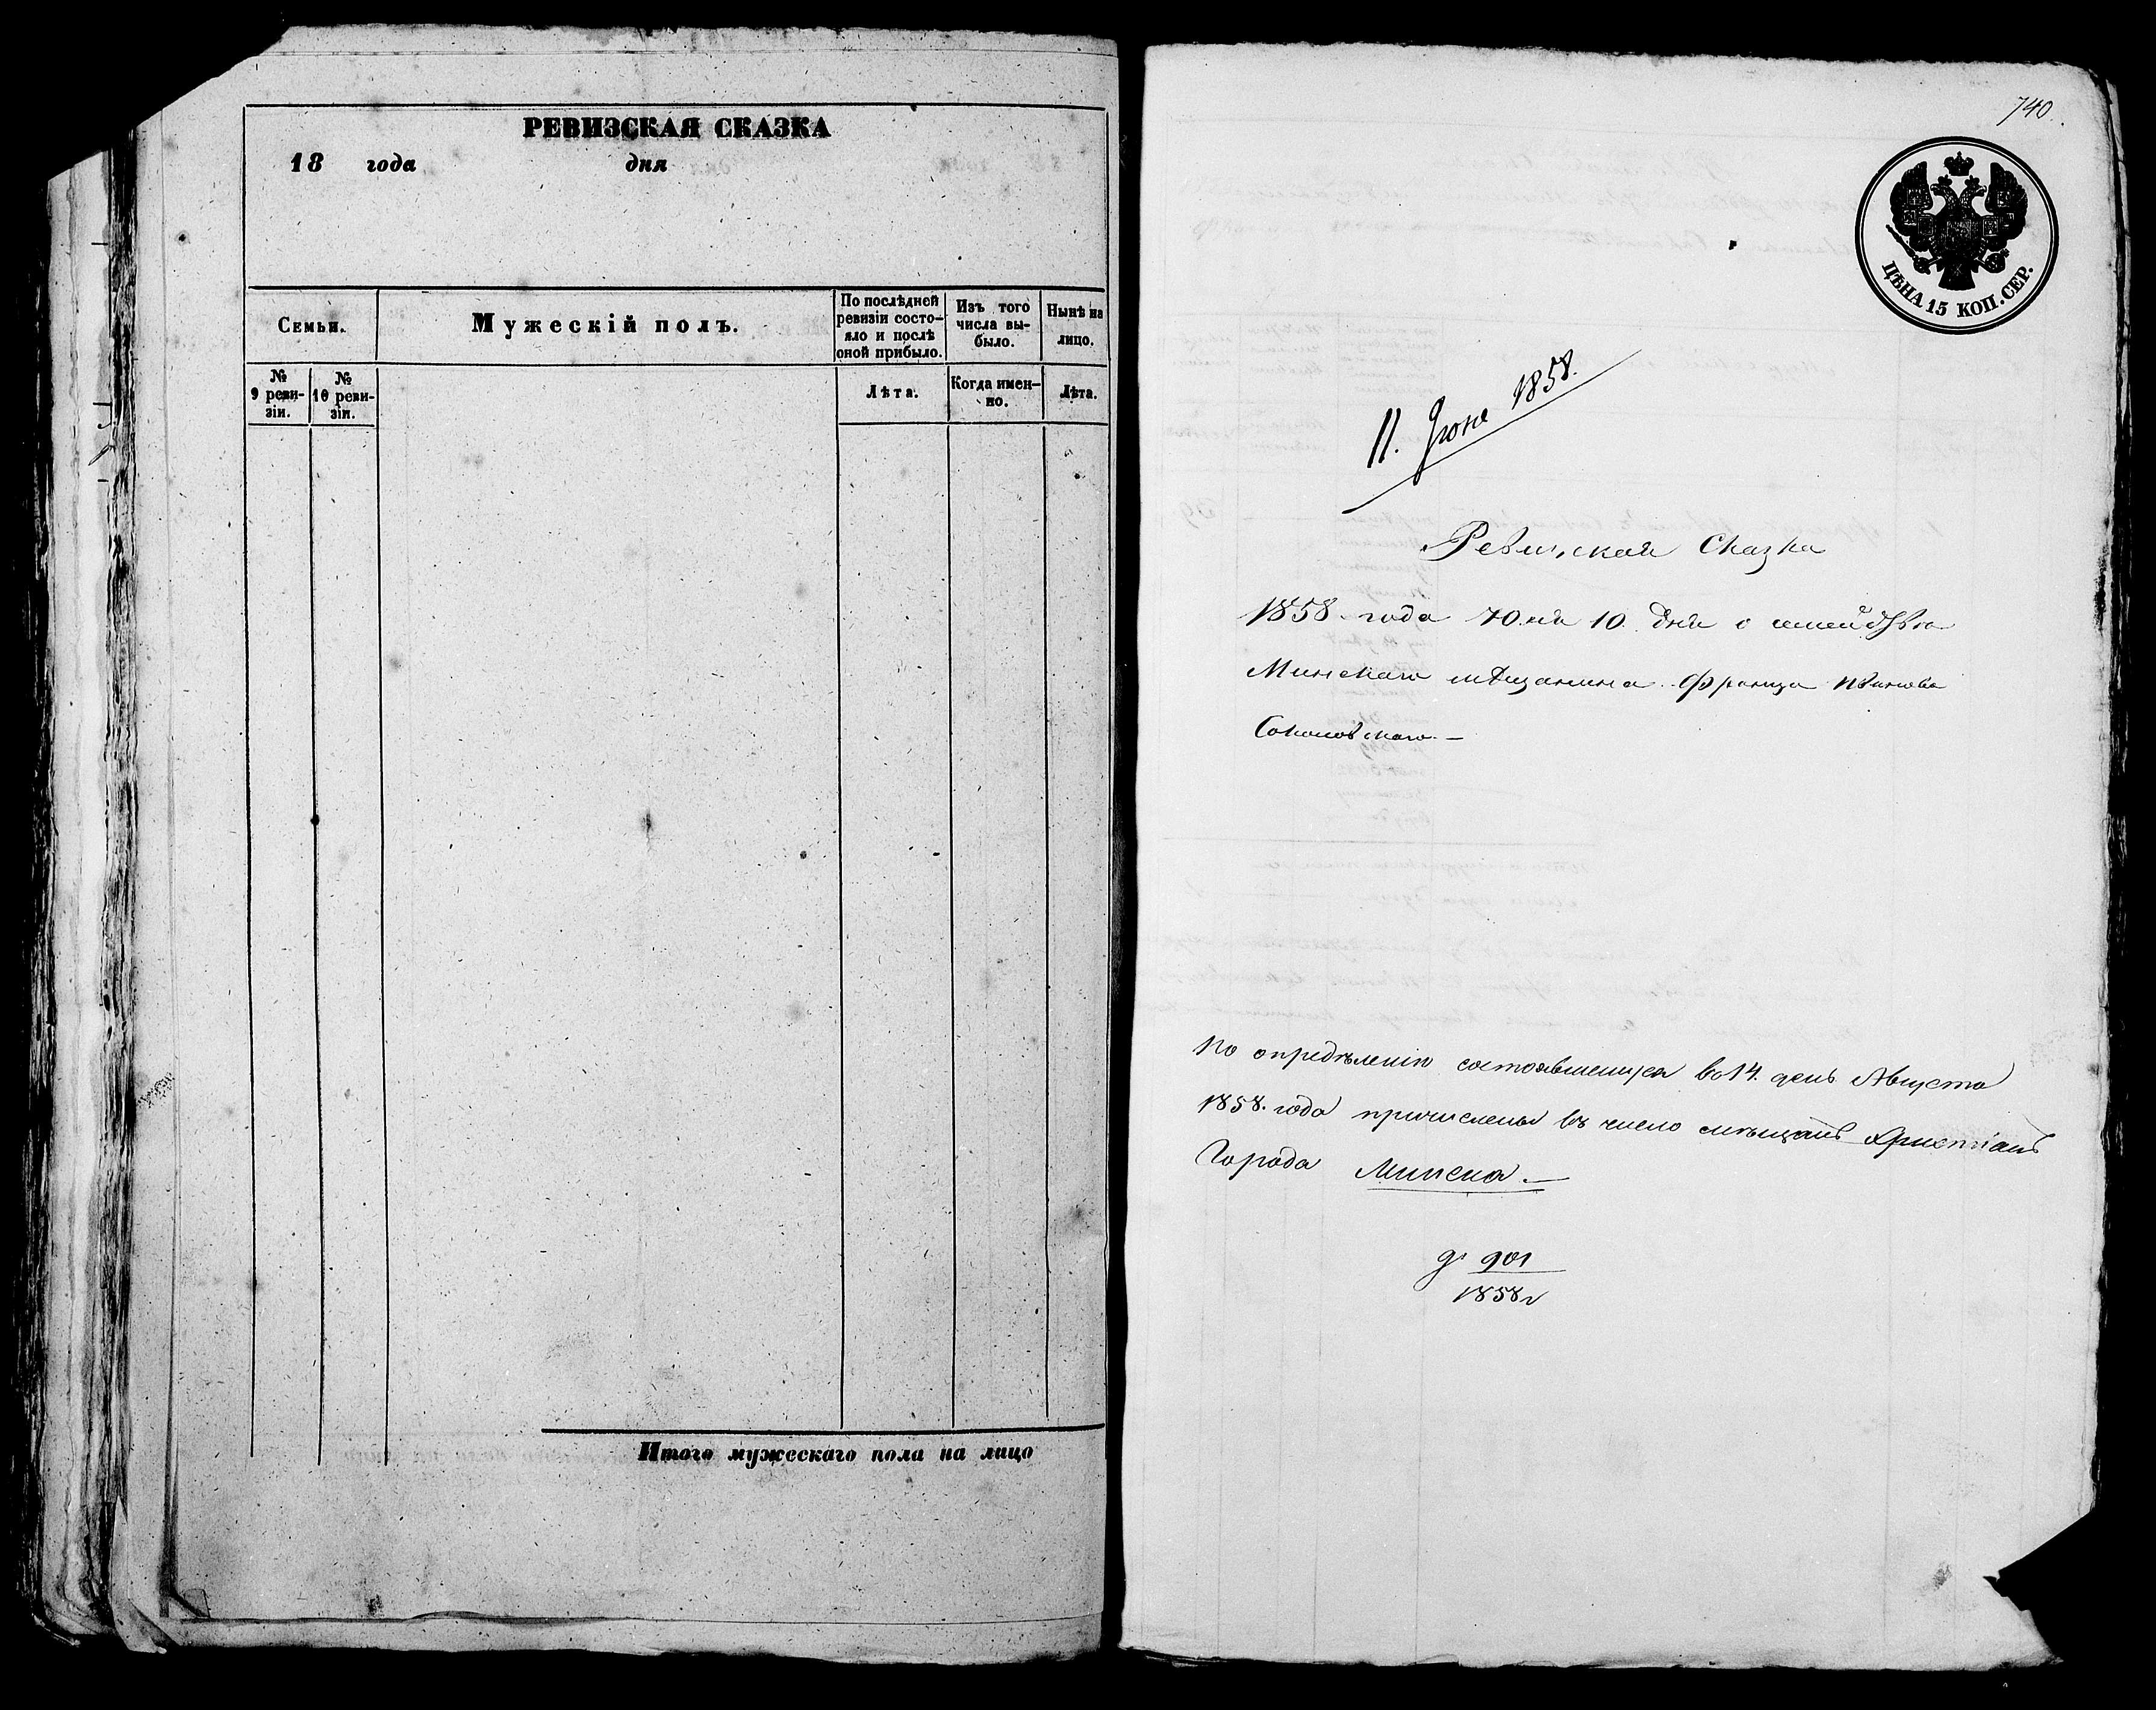 РЕВИЗСКАЯ СКАЗКА
18 года дня
Семьи.
Мужескій полъ.
По послѣдней
ревизіи состо-
яло и послѣ
оной прибыло.
Изъ того
числа вы-
было.
Нынѣ на
лицо.
№
9 реви-
зіи.
№
10 реви-
зіи.
Лѣта.
Когда имен-
но.
Лѣта.
Итого мужескаго пола на лицо
740.
ЦѢНА 15 КОП. СЕР.
11. Іюне 1858.
Ревизская Сказка
1858 года Юня 10 дня о семействѣ
Минскаго мѣщанина Франца Иванова
Соколовскаго.—
По опредѣленію состоявшемуся во 14. день Августа
1858. года причислены въ число мѣщанъ христіанъ
Города Минска.—
д. 901
1858 г